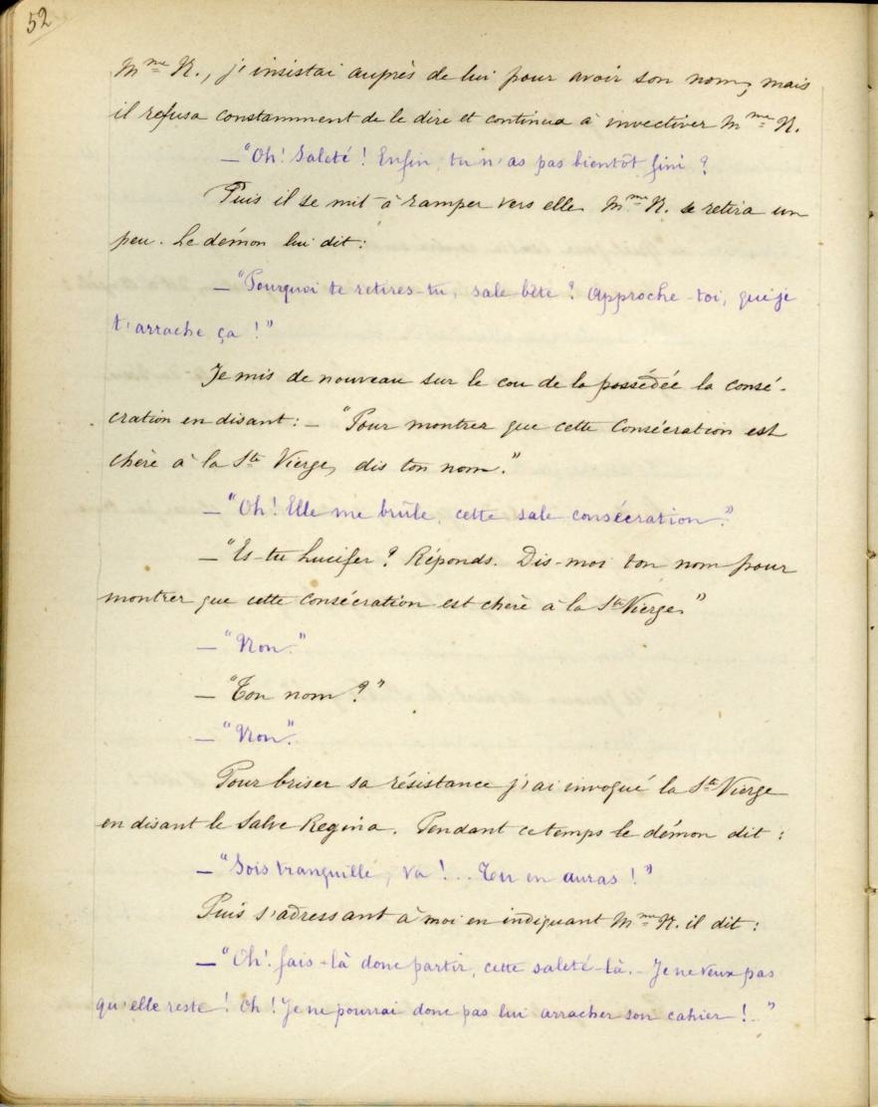 52
Mme N., j'insistai auprès de lui pour avoir son nom, mais
il refusa constamment de le dire et continua à invectiver Mme N.
— "Oh! Saleté! Enfin, tu n'as pas bientôt fini ?
Puis il se mit à ramper vers elle. Mme N. se retira un
peu. Le démon lui dit :
— "Pourquoi te retires-tu, sale bête ? Approche-toi, que je
t'arrache ça !"
Je mis de nouveau sur le cou de la possédée la consé-
cration en disant : — "Pour montrer que cette Consécration est
chère à la Ste Vierge, dis ton nom."
— "Oh! Elle me brûle, cette sale consécration."
— "Es-tu Lucifer ? Réponds. Dis-moi ton nom pour
montrer que cette consécration est chère à la Ste Vierge"
— "Non."
— "Ton nom ?"
— "Non".
Pour briser sa résistance j'ai invoqué la Ste Vierge
en disant le Salve Regina. Pendant ce temps le démon dit :
— "Sois tranquille, va !.. Tu en auras !"
Puis s'adressant à moi en indiquant Mme N. il dit :
— "Oh! fais-là donc partir, cette saleté-là.- Je ne veux pas
qu'elle reste ! Oh ! Je ne pourrai donc pas lui arracher son cahier !.."